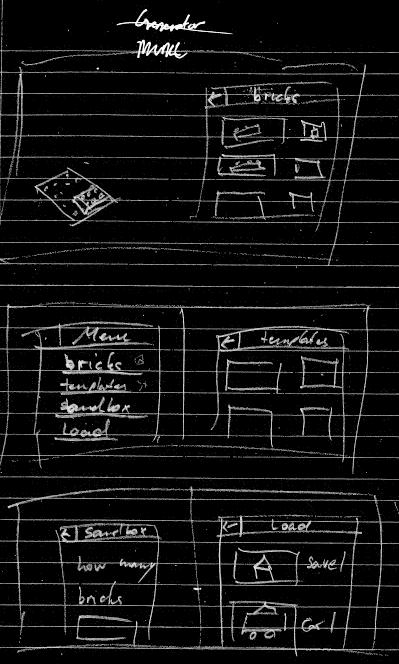 Generator
bricks
Menu
bricks
templates
sandbox
Load
templates
Sandbox
how many
bricks
Load
Save1
Car1